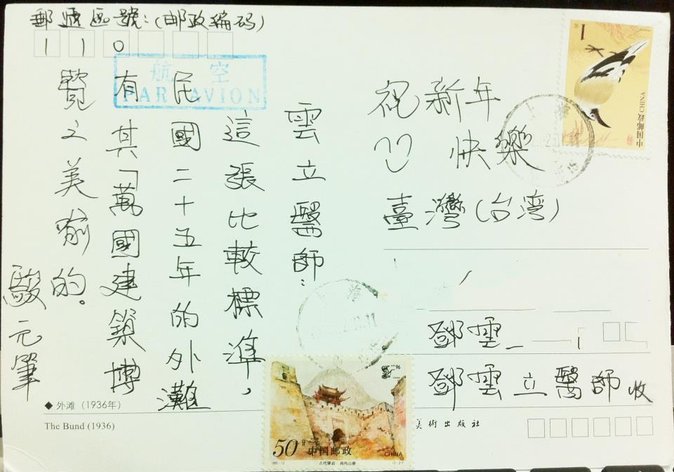 郵遞區號:(邮政编码)
110
航空
PAR AVION
雲立醫師:
這張比較標準,
民國二十五年的外灘
有其「萬國建築博
覽之美喻的。
駿元筆
祝新年
快樂
臺灣(台湾)
鄧雲
鄧雲立醫師收
1
中国邮政
CHINA
50分
中国邮政
◆外滩(1936年)
The Bund (1936)
美術出版社